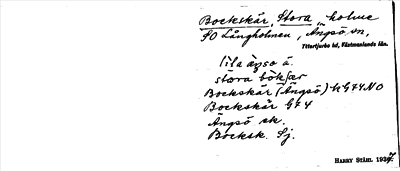 Bockskär, Stora, holme
SO Långholmen, Ängsö sn,
Yttertjurbo hd, Västmanlands län.
lila ängsö å.
stora bök
Bockskär (Ängsö) G74NO
Bockskär G74
Ängsö sk.
Bocksk. Sj.
HARRY STÅHL 1937.